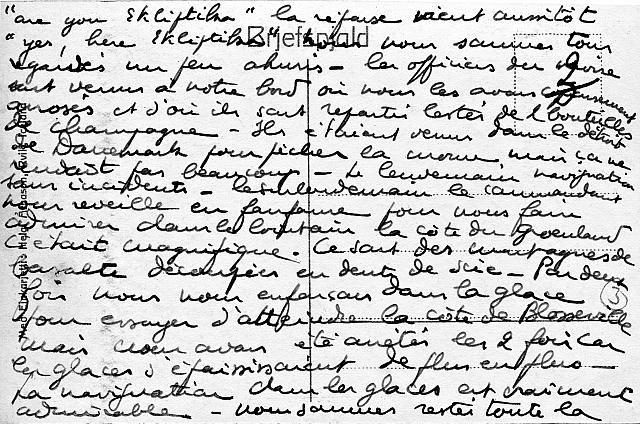 "are you Ekliptika" la réponse vient aussitôt
"yes, here Ekliptika" nous nous sommes tous
regardés un peu ahuris - les officiers du navire
sont venus à notre bord où nous les avons
et d'où ils sont repartis lestés de 1 bouteilles
de Champagne - Ils étaient venus dans le détroit
de Danemark pour pêcher la morue, mais ça ne
rendait pas beaucoup - Le lendemain navigation
sans incidents - le surlendemain le commandant
nous réveille en fanfare pour nous faire
admirer dans le lointain la côte du Groenland
C'était magnifique. Ce sont des montagnes de
basalte découpées en dents de scie - Par deux
fois nous nous enfonçons dans la glace
pour essayer d'atteindre la côte de Blosseville
mais nous avons été arrêtés les 2 fois car
les glaces s'épaississaient de plus en plus -
La navigation dans les glaces est vraiment
admirable - nous sommes restés toute la
Briefspjald
3